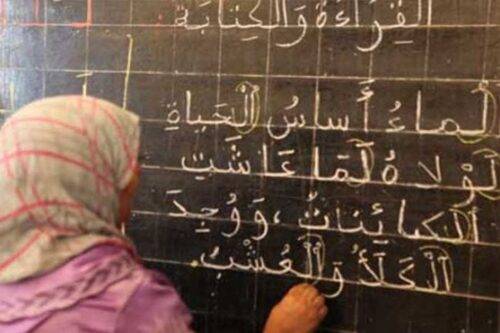 القِرَاءَةُ وَالْكِتَابَةُ
لْمَاءُ أَسَاسُ الْحَيَاةِ
لَوْلَاهُ لَمَا عَاشَتِ
الْكَائِنَاتُ، وَوُجِدَ
الْكَلَأُ وَالْعُشْبُ.